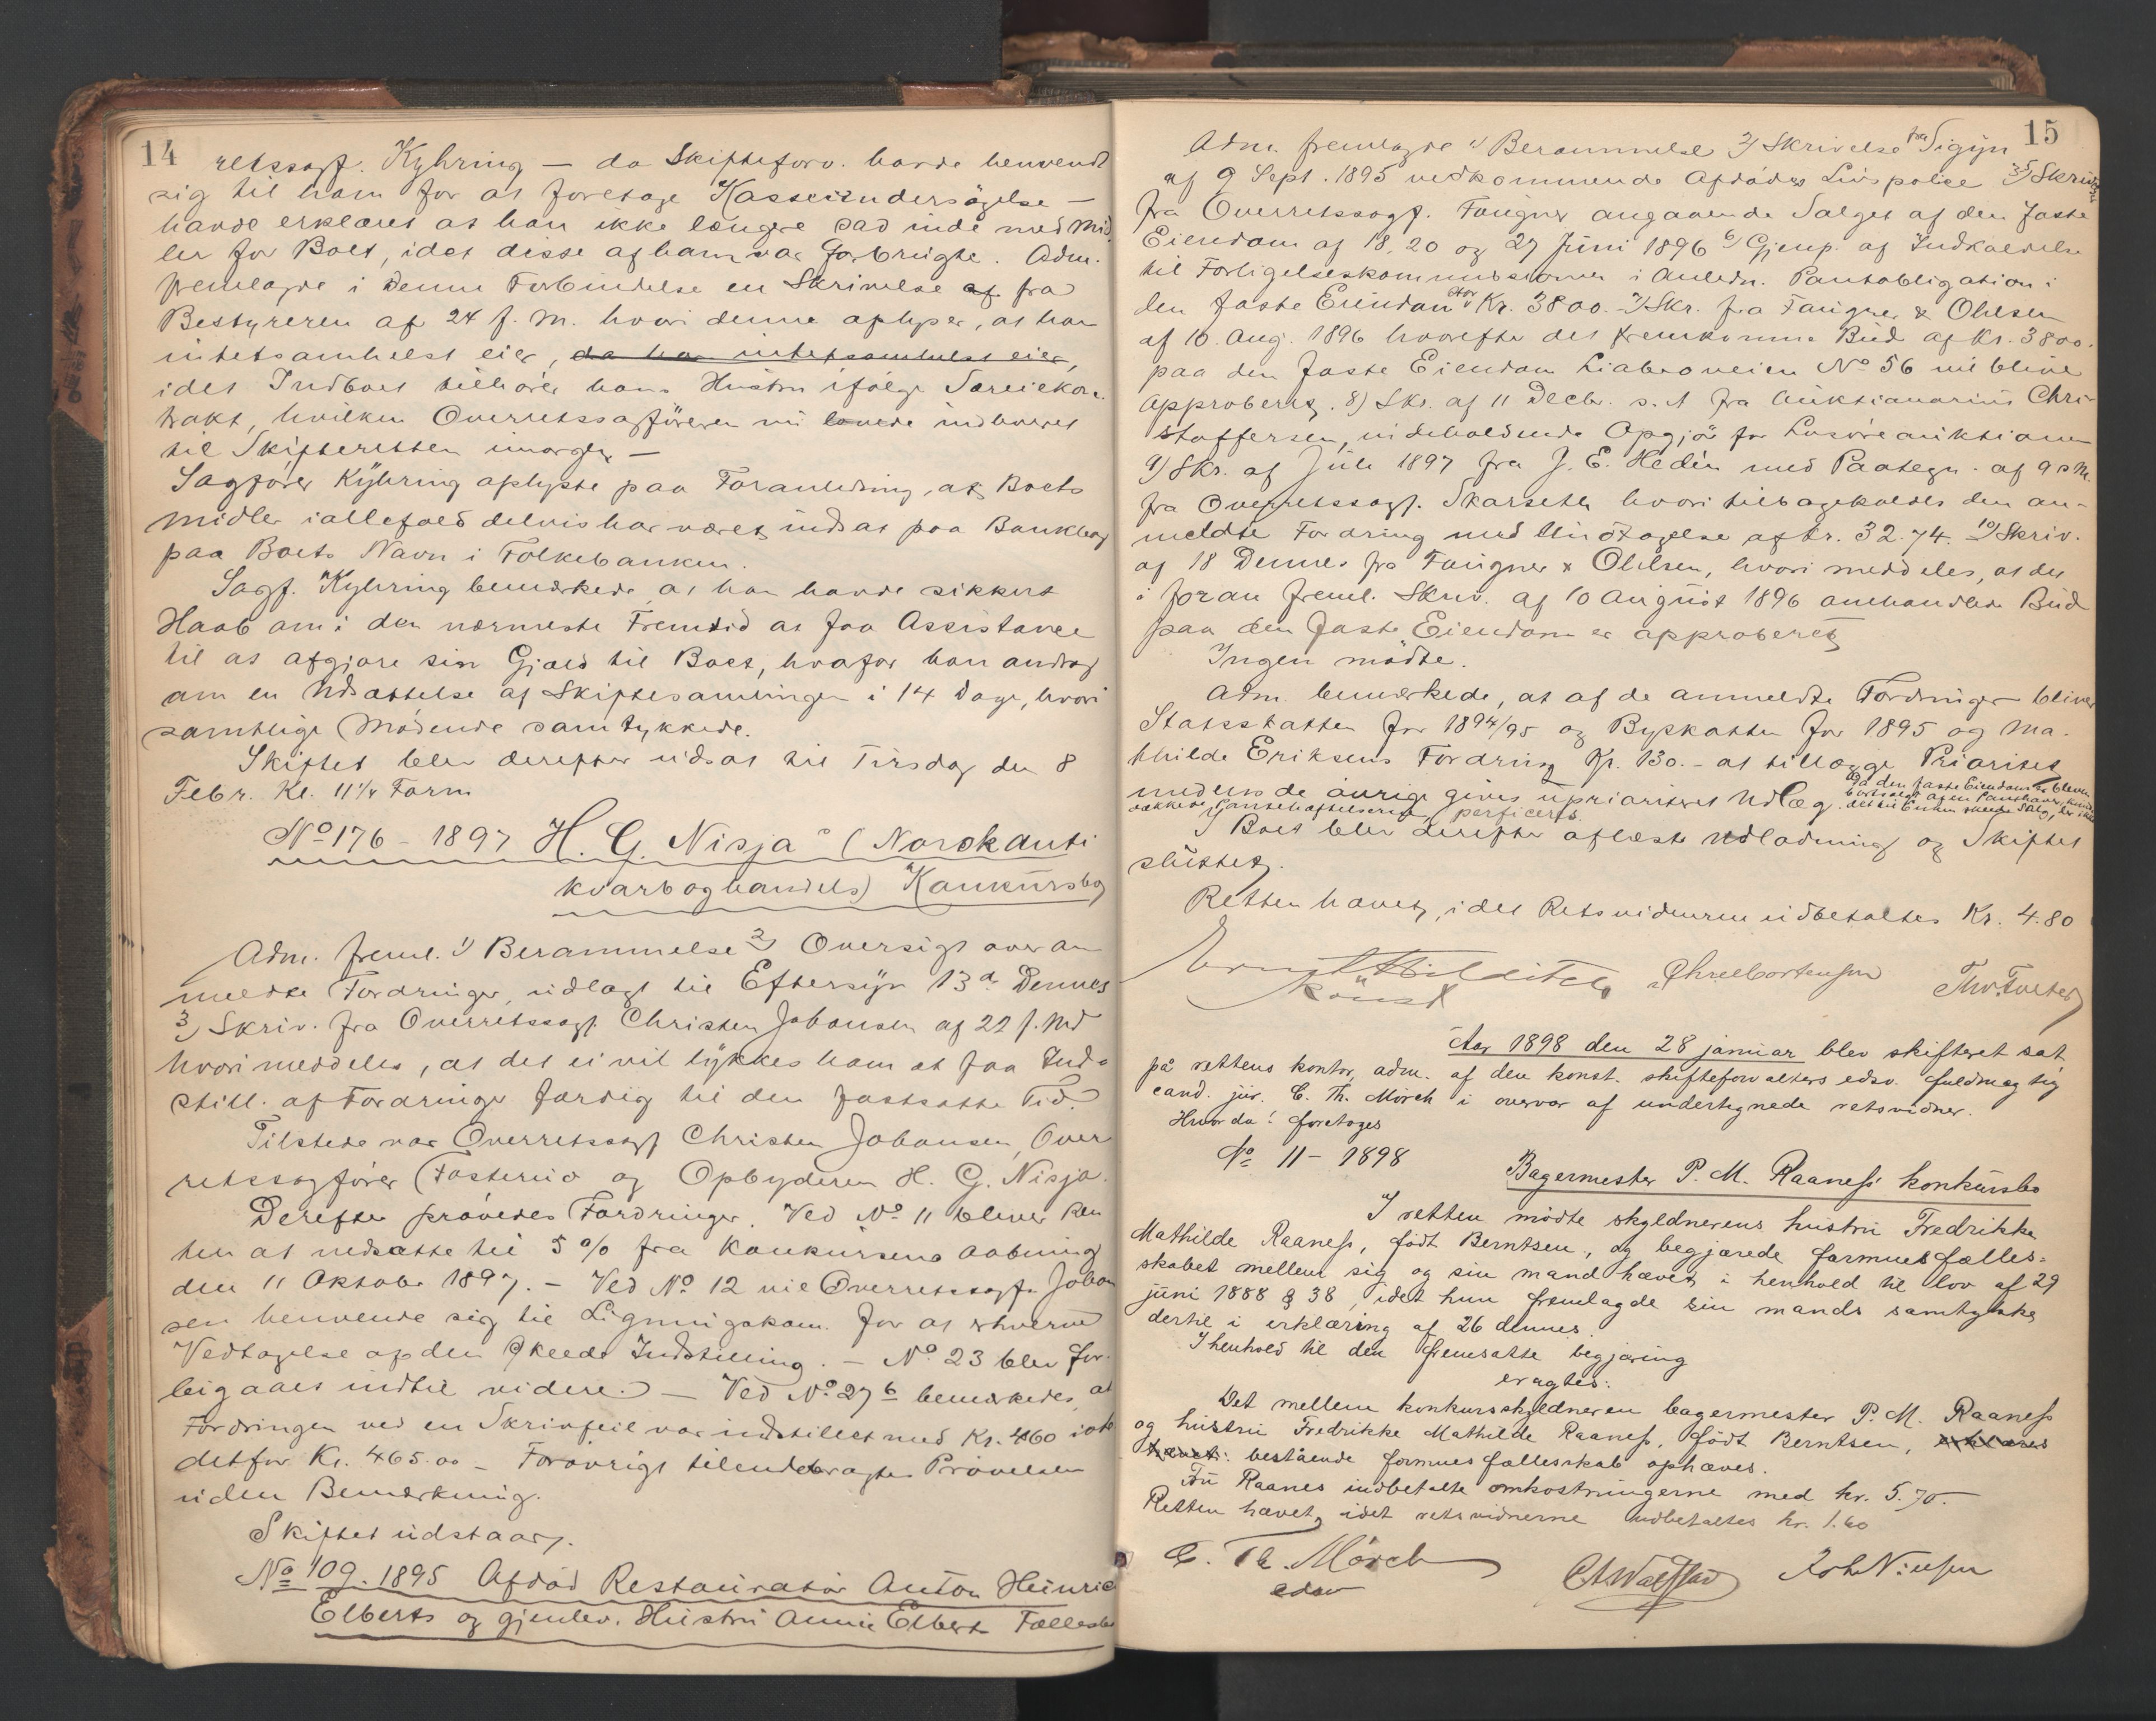 14
retssagf. Kyhring — da Skifteforv. havde henvendt
sig til ham for at foretage Kasseundersøgelse —
havde erklæret at han ikke længere sad inde med Mid
ler for Boet, idet disse af ham var forbrugte. Adm.
fremlagde i denne Forbindelse en Skrivelse af fra
Bestyreren af 24 f. M. hvori denne oplyser, at han
intetsomhelst eier, da han intetsomhelst eier,
idet Indboet tilhører hans Hustru ifølge Særeiekon-
trakt, hvilken Overretssagføreren vil levere indleveret
til Skifteretten imorgen —
Sagfører Kyhring oplyste paa Foranledning, at Boets
Midler iallefald delvis har været indsat paa Bankbog
paa Boets Navn i Folkebanken.
Sagf. Kyhring bemærkede at han havde sikkert
Haab om i den nærmeste Fremtid at faa Assistance
til at afgjøre sin Gjæld til Boet, hvorfor han androg
om en Udsættelse af Skiftesamlingen i 14 Dage, hvori
samtlige Mødende samtykkede.
Skiftet blev derefter udsat til Tirsdag den 8
Febr. Kl. 11¼ Form
No 176 - 1897 H. G. Nisja's (Norsk anti
kvarboghandels) Konkursbo
Adm. freml. 1) Berammelse 2) Oversigt over an
meldte Fordringer, udlagt til Eftersyn 13de Dennes
3) Skriv. fra Overretssagf. Christen Johansen af 22 f. Md
hvori meddeles, at det ei vil lykkes ham at faa Ind-
still. af Fordringer færdig til den fastsatte Tid.
Tilstede var Overretssagf Christen Johansen, Over
retssagfører og Opbyderen H. G. Nisja.
Derefter prøvedes Fordringer. Ved No 11 bliver Ren
ten at nedsætte til 5 % fra Konkursens Aabning
den 11 Oktober 1897. — Ved No 12 vil Overretssagf. Johan
sen henvende sig til Ligningskom. for at erhverve
Vedtagelse af den skeede Indstilling. — No 23 blev for-
beigaaet indtil videre. — Ved No 27 b bemærkedes, at
Fordringen ved en Skrivfeil var indstillet med Kr. 460 iste
detfor Kr. 465.00 — Forøvrigt tilendebragtes Prøvelsen
uden Bemærkning.
Skiftet udstaar.
No 109. 1895 Afdød Restauratør Anton Heinric
Elberts og gjenlev. Hustru Annie Elbert Fællesbo
15
Adm. fremlagde 1) Berammelse 2) Skrivelse fra Sigyn
af 9 Sept. 1895 vedkommende Afdødes Livspolice 3/5) Skrivelser
fra Overretssagf. Faugner angaaende Salget af den faste
Eiendom af 18, 20 og 27 Juni 1896 6) Gjenp. af Indkaldelse
til Forligelseskommissionen i Anledn. Pantobligation i
den faste Eiendom stor Kr. 3800.- 7) Skr. fra Faugner & Ohlsen
af 10 Aug. 1896 hvorefter det fremkomne Bud af Kr. 3800.
paa den faste Eiendom Liabroveien No 56 vil blive
approberet. 8) Skr. af 11 Decbr. s. A fra Auktionarius Chri-
stoffersen, indeholdende Opgjør for Løsøreauktionen
9) Skr. af Juli 1897 fra J. E. Hedén med Paategn. af 9 s M.
fra Overretssagf. Skarseth hvori tilbagekaldes den an-
meldte Fordring med Undtagelse af Kr. 32.74. 10) Skriv.
af 18 Dennes fra Faugner & Ohlsen, hvori meddeles, at det
i foran freml. Skriv. af 10 August 1896 omhandlede Bud
paa den faste Eiendom er approberet
Ingen mødte.
Adm. bemærkede, at af de anmeldte Fordringer bliver
Statsskatten for 1894/95 og Byskatten for 1895 og Ma-
thilde Eriksens Fordring Kr. 130.- at tillægge Prioritet
medens de øvrige gives uprioriteret Udlæg. Da den faste Eiendom er bleven
bortsolgt af en Panthaver,
I Boet blev derefter aflæst Udlodning og Skiftet
sluttet.
Retten hævet, idet Retsvidnerne udbetaltes Kr. 4.80
Aar 1898 den 28 januar blev skifteret sat
på rettens kontor, adm. af den konst. skifteforvalters edsv. fuldmægtig
cand. jur. C. Th. Mörch i overvær af undertegnede retsvidner.
Hvorda: foretoges
No 11 - 1898
Bagermester P. M. Raaness' konkursbo
I retten mødte skyldnerens hustru Fredrikke
Mathilde Raaness, født Berntsen, og begjærede formuesfælles-
skabet mellem sig og sin mand hævet i henhold til lov af 29
juni 1888 § 38, idet hun fremlagde sin mands samtykke
dertil i erklæring af 26 dennes.
I henhold til den fremsatte begjæring
eragtes:
Det mellem konkursskyldneren bagermester P. M. Raaness
og hustru Fredrikke Mathilde Raaness, født Berntsen, erklæres
hævet: bestående formuesfællesskab ophæves.
Fru Raanes indbetalte omkostningerne med kr. 5.70.
Retten hævet, idet retsvidnerne udbetaltes kr. 1.60
C. Th. Mörch
edsv